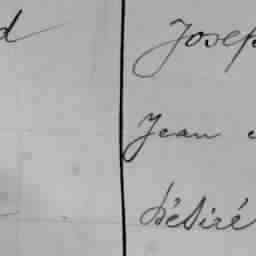 d Josep
Jean
Désiré